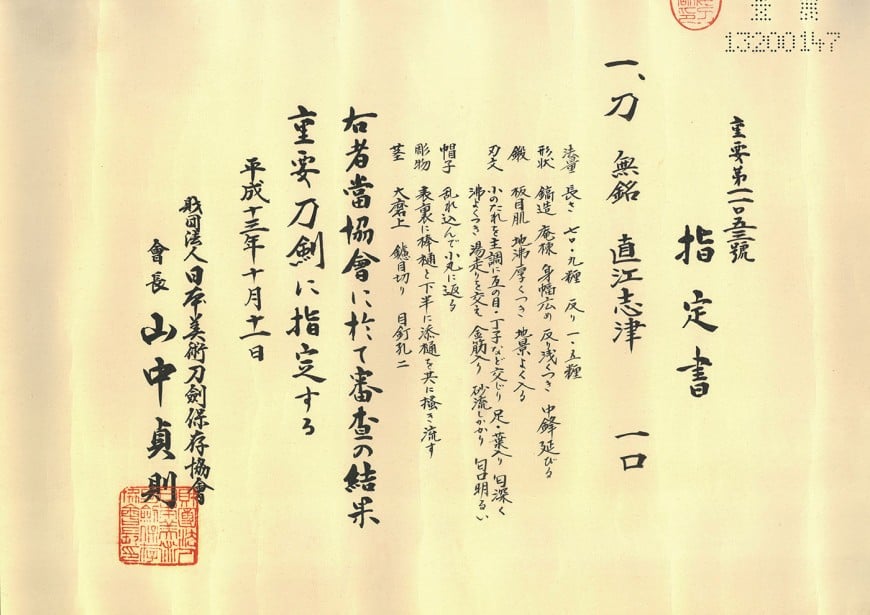 重要第一一〇五三號
指定書
一、刀 無銘 直江志津 一口
法量 長さ 七〇・九糎 反り 一・五糎
形状 鎬造 庵棟 身幅広め 反り浅くつき 中鋒延びる
鍛 板目肌 地沸厚くつき 地景よく入る
刃文 小のたれを主調に互の目・丁子など交じり 足・葉入り 匂深く
沸よくつき 湯走りを交え 金筋入り 砂流しかかり 匂口明るい
帽子 乱れ込んで小丸に返る
彫物 表裏に棒樋と下半に添樋を共に掻き流す
茎 大磨上 鑢目切り 目釘孔二
右者當協會に於て審査の結果
重要刀剣に指定する
平成十三年十月十二日
財団法人日本美術刀剣保存協會
會長 山中貞則
13200147